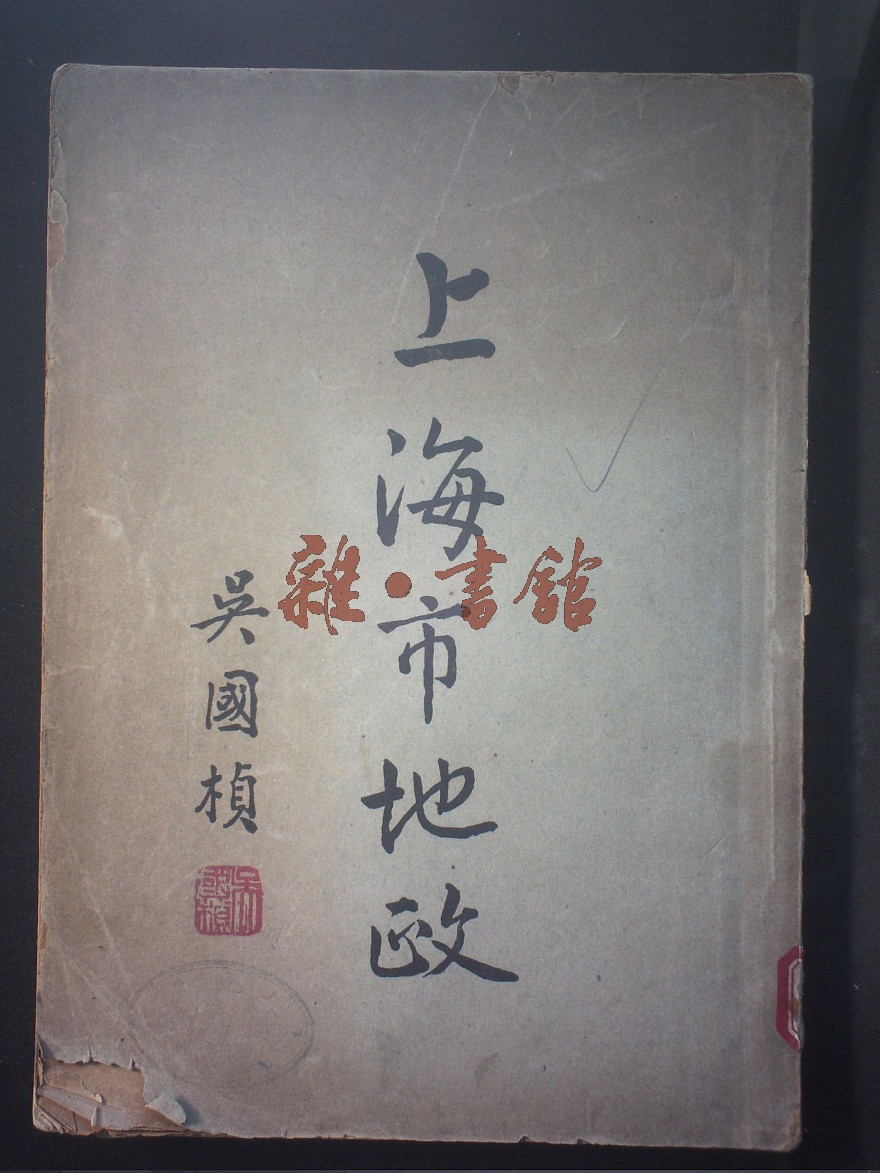 上海市地政
吳國楨
吳國楨
雜·書館